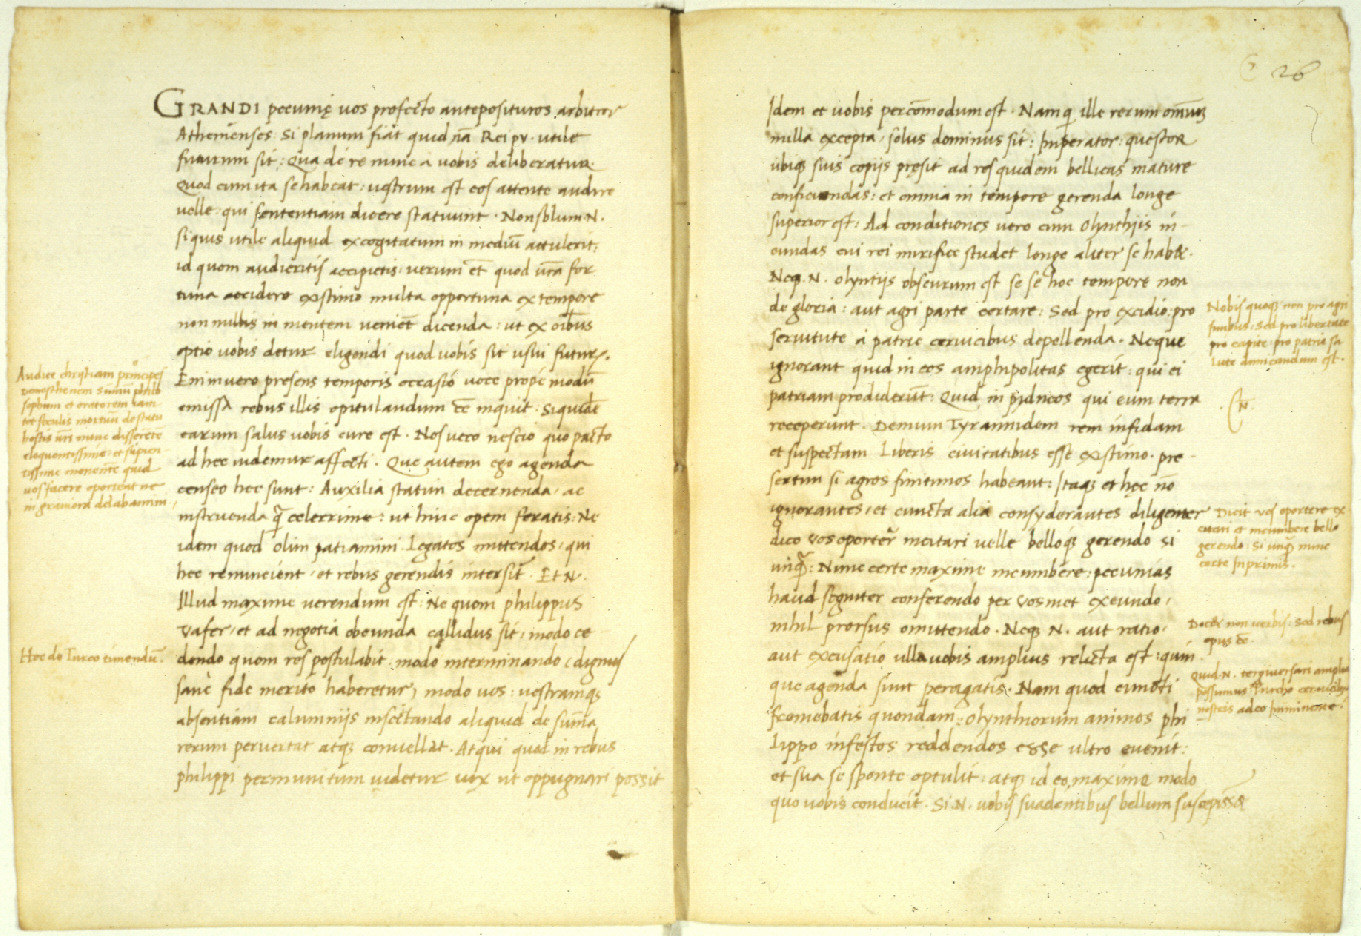 GRANDI pecunię vos profecto anteposituros arbitror
Athenienses. Si planum fiat quid nā Rei pu. utile
futurum sit: Qua de re nunc a vobis deliberatur.
Quod cum ita se habeat: vestrum est eos attente audire
velle: qui sententiam dicere statuunt. Non solum N.
si quis utile aliquid excogitatum in mediū attulerit:
id quom audieritis accipietis: verum ēt quod urā for
tuna accidere existimo multa opportuna ex tempore
non nullis in mentem veniēt dicenda: ut ex oibus
optio vobis detur eligendi quod vobis sit usui futur
Enim vero presens temporis occasio voce prope modū
emissa rebus illis opitulandum ēē inquit. Si quidē
earum salus vobis curę est. Nos vero nescio quo pacto
ad hec videmur affecti. Que autem ego agenda
censeo hec sunt: Auxilia statim decernenda: ac
instruenda q̄ celerrime: ut hinc opem feratis. Ne
idem quod olim patiamini. Legatos mittendos: qui
hec renuncient: et rebus gerendis intersīt. Et N.
Illud maxime verendum est: Ne quom philippus
vafer: et ad negotia obeunda callidus sit: modo ce
dendo quom res postulabit: modo interminando: dignus
sane fide merito haberetur: modo vos: vestramq;
absentiam calumnijs insectando aliquid de sum̄a
rerum pervertat atq; convellat. Atqui quod in rebus
philippi permunitum videtur vix ut oppugnari possit
Audite chrīstiani principes
demosthenem
sophum et oratorem iam
tot seculis mortuū de statu
hostis urī nunc disserētē
eloquentissime: et sapien
tissime monentē quid
vos facere oporteat ne
in gravioradelabamini
Hoc de Turco timendū.
26
Idem et vobis percōmodum est. Namq; ille rerum omniū
nulla excepta: solus dominus sit: Imperator: questor
ubiq; suis copijs presit ad res quidem bellicas mature
conficiendas: et omnia in tempore gerenda longe
superior est: Ad conditiones vero cum Olynthijs in-
eundas cui rei mirifice studet longe aliter se habēt.
Neq. N. olyntijs obscurum est se se hoc tempore non
de gloria: aut agri parte certare: Sed pro excidio: pro
servitute a patrie cervicibus depellenda. Neque
ignorant quid in eos amphipolitas egerit: qui ei
patriam prodiderūt: Quid in pidneos qui eum terra
receperunt. Demum Tyrannidem rem infidam
et suspectam Liberis civitatibus esse existimo. pre-
sertim si agros finitimos habeant: Itaq; et hęc nō
ignorantes: et cuncta alia consyderantes diligenter
dico vos oportēr incitari velle belloq; gerendo si
unq̄: Nunc certe maxime incumbere: pecunias
haud segniter conferendo per vosmet exeundo:
nihil prorsus omittendo. Neq. N. aut ratio:
aut excusatio ulla vobis amplius relicta est: quin
que agenda sunt peragatis. Nam quod cuncti
fremebatis quondam: olynthiorum animos phi
lippo infestos reddendos esse ultro evenit:
et sua se sponte optulit: atq; id eo maxime modo
quo vobis conducit. Si. N. vobis suadentibus bellum suscepissēt
Nobis quoq; non pro agri
finibus: sed pro libertate
pro capite: pro patria sa
lute dimicandum est.
N.
Dicit vos oportere ex
citari et incumbere bello
gerendo: Si unq̄ nunc
certe inprimis.
Docet non verbis: sed rebus
opus ēē.
Quid. N. tergiversari amplius
possumus Turcho cervicibus
nostris adeo iminente.